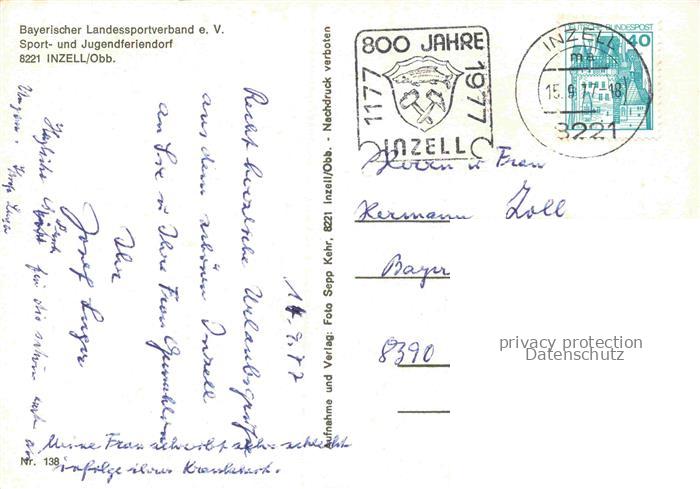 Bayerischer Landessportverband e. V.
Sport- und Jugendferiendorf
8221 INZELL/Obb.
14.9.77
Recht herzliche Urlaubsgrüße
aus dem schönen Inzell
an Sie u Ihre Frau Gemahlin
Ihr
Josef
Herzliche
für die schöne
Meine Frau schreibt sehr schlecht
infolge ihrer Krankheit.
Nr. 138
Aufnahme und Verlag: Foto Sepp Kehr, 8221 Inzell/Obb. - Nachdruck verboten
800 JAHRE
1177
1977
INZELL
INZELL
15.9.77-18
8221
DEUTSCHE BUNDESPOST
40
Herrn u Frau
Hermann Zoll
Bayer
8390
privacy protection
Datenschutz